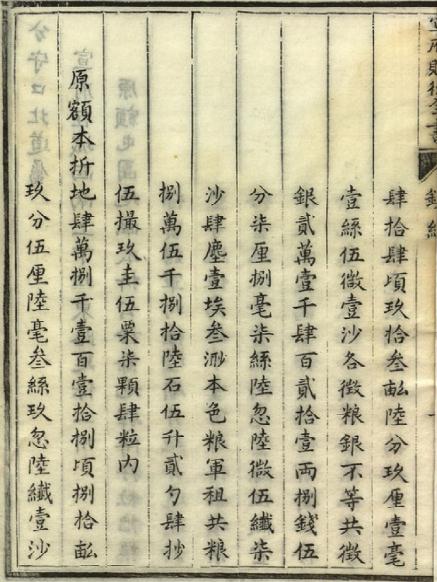 肆拾肆頃玖拾叁畝陸分玖厘壹毫
壹絲伍微壹沙各徵粮銀不等共徵
銀貳萬壹千肆百貳拾壹兩捌錢伍
分柒厘捌毫柒絲陸忽陸微伍纖柒
沙肆塵壹埃叁渺本色粮軍租共粮
捌萬伍千捌拾陸石伍升貳勺肆抄
伍撮玖圭伍粟柒顆肆粒內
原額本折地肆萬捌千壹百壹拾捌頃捌拾畝
玖分伍厘陸毫叁絲玖忽陸纖壹沙